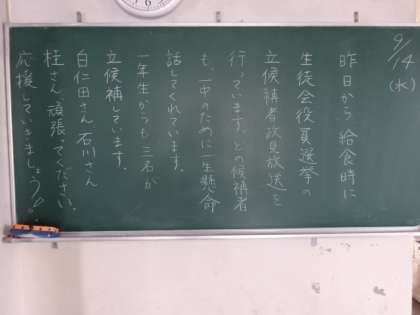 9/14
(水)
昨日から給食時に
生徒会役員選挙の
立候補者政見放送を
行っています。どの候補者
も、一中のために一生懸命
話してくれています。
一年生からも三名が
立候補しています。
白仁田さん 石川さん
桂さん 頑張ってください。
応援していきましょう!!